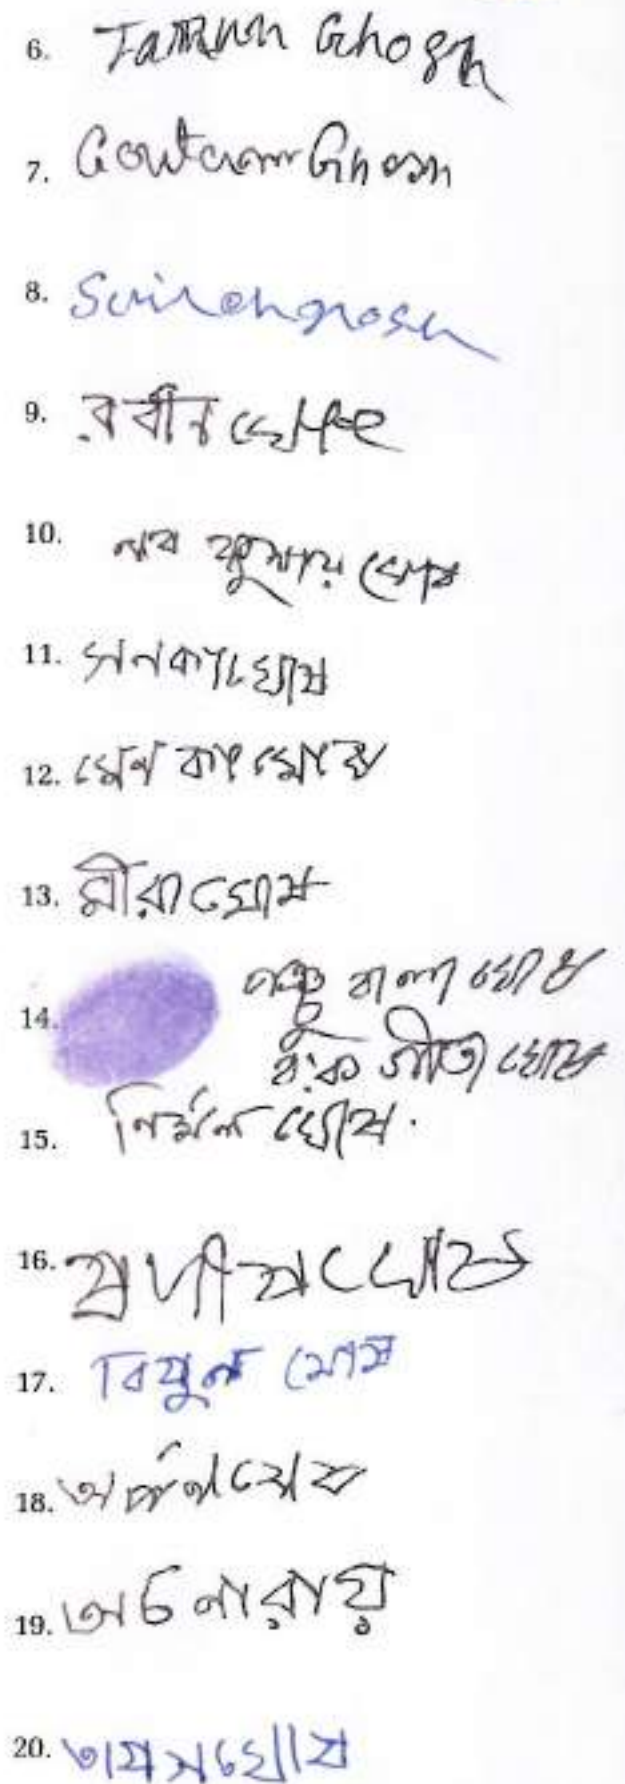 6. Tarun Ghosh
7. Goutam Ghosh
8.
9. রবীন ঘোষ
10. নব কুমার ঘোষ
11. ঘোষ
12. মেনকা ঘোষ
13. মীরা ঘোষ
14. বালা ঘোষ
বঃ কঃ গীতা ঘোষ
15. নির্মল ঘোষ.
16. প্রদীপ ঘোষ
17. বিপুল ঘোষ
18. অর্পনা ঘোষ
19. অর্চনা রায়
20. তাপস ঘোষ